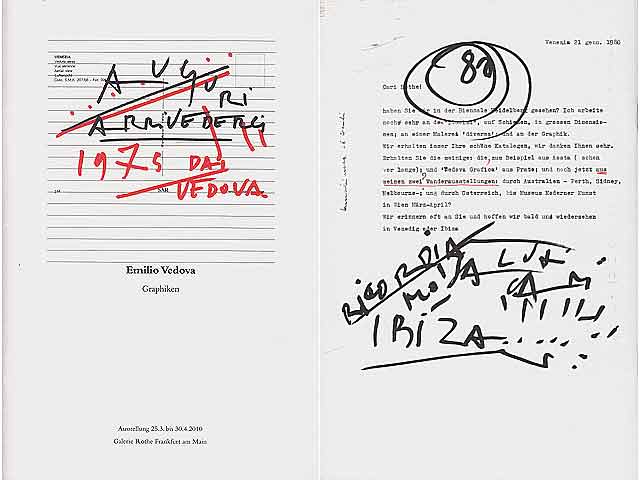 VENEZIA
AUGURI
ARRIVEDERCI
1975 DAI
VEDOVA.
Emilio Vedova
Graphiken
Ausstellung 25.3. bis 30.4.2010
Galerie Rothe Frankfurt am Main
Venezia 21 genn. 1980
80
Cari Rothe!
haben Sie wir in der Biennale Heidelberg gesehen? Ich arbeite
noch sehr an den , auf Schienen, in grossen Dimensio-
nen; an einer Malerei 'diversa'; und an der Graphik.
Wir erhalten immer Ihre schöne Katalogen, wir danken Ihnen sehr.
Erhalten Sie die meinige: die, zum Beispiel aus Aosta ( schon
ver lange); und 'Vedova Grafica' aus Prato; und noch jetzt aus
meinen zwei Wanderausstellungen: durch Australien - Perth, Sidney,
Melbourne-; und durch Österreich, bis Museum Moderner Kunst
in Wien März-April?
Wir erinnern oft an Sie und hoffen wir bald und wiedersehen
in Venedig oder Ibiza
RICORDIA
MO
IBIZA